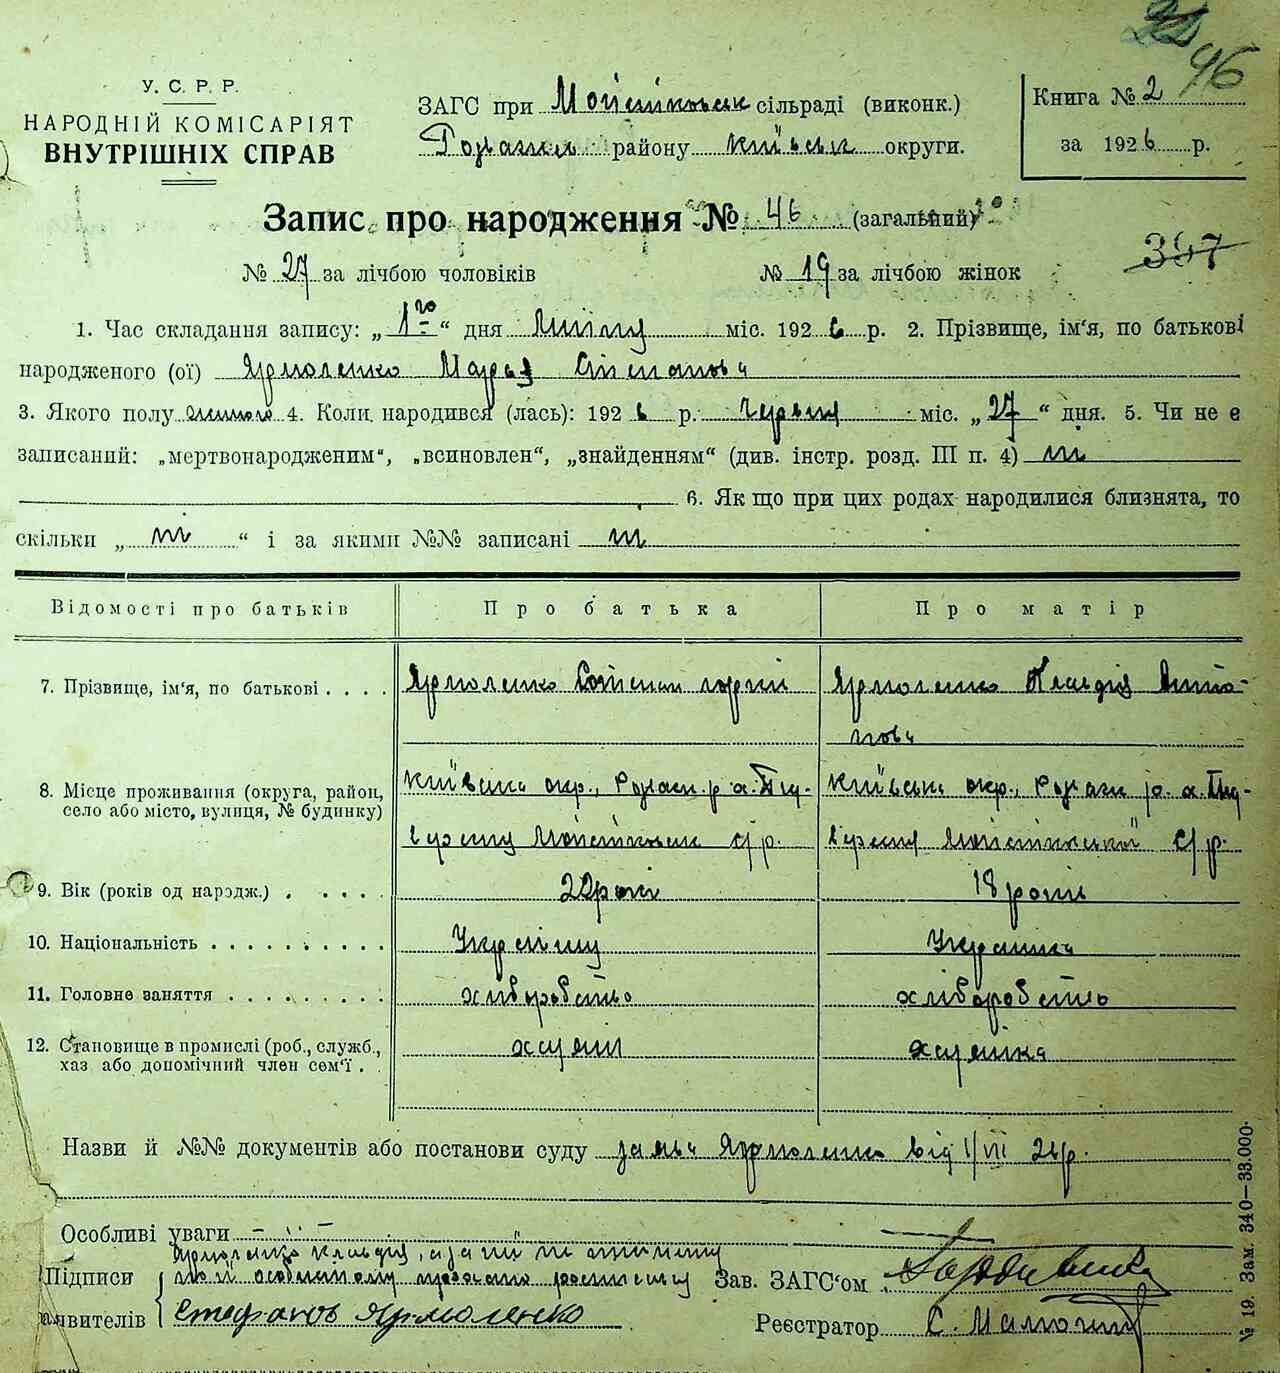 46
У. С. Р. Р.
НАРОДНІЙ КОМІСАРІЯТ
ВНУТРІШНІХ СПРАВ
ЗАГС при сільраді (виконк.)
району київськ округи.
Книга № 2
за 1926 р.
Запис про народження № 46 (загальний)
№ 27 за лічбою чоловіків № 19 за лічбою жінок
397
1. Час складання запису: „1го“ дня липцу міс. 1926 р. 2. Прізвище, ім'я, по батькові
народженого (ої) Ярмоленко Марія Степанова
3. Якого полу жіночого 4. Коли народився (лась): 1926 р. червця міс. „27“ дня. 5. Чи не є
записаний: „мертвонародженим“, „всиновлен“, „знайденням“ (див. інстр. розд. III п. 4) ні
6. Як що при цих родах народилися близнята, то
скільки „ні“ і за якими №№ записані ні
Відомості про батьків Про батька Про матір
7. Прізвище, ім'я, по батькові . . . . Ярмоленко Ярмоленко Клавдія
8. Місце проживання (округа, район, київська окр., київська окр.,
село або місто, вулиця, № будинку) с/р. с/р.
9. Вік (років од народж.) . . . . . 22 рокі 18 років
10. Національність . . . . . . . . . . Українц Українка
11. Головне заняття . . . . . . . . . хліборобство хліборобство
12. Становище в промислі (роб., служб., хазяїн хазяйка
хаз або допомічний член сем'ї . .
Назви й №№ документів або постанови суду заява Ярмоленко від 1/VII 26р.
Особливі уваги
Ярмоленко Клавдія, а за
Підписи особистому росписку Зав. ЗАГС'ом
явителів Стефанов Ярмоленко
Реєстратор С.
№ 19. Зам. 340—33.000.